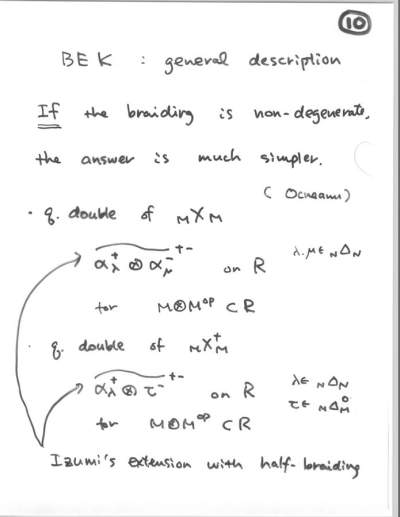 10
BEK : general description
If the braiding is non-degenerate,
the answer is much simpler.
( Ocneanu )
· q. double of MXM
α⁺λ ⊗ α⁻μ ⁺⁻ on R λ.μ ∈ NΔN
for M⊗Mᵒᵖ ⊂ R
· q. double of MX⁺M
α⁺λ ⊗ τ⁻ ⁺⁻ on R λ ∈ NΔN
τ ∈ MΔ⁰M
for M⊗Mᵒᵖ ⊂ R
Izumi's extension with half-braiding